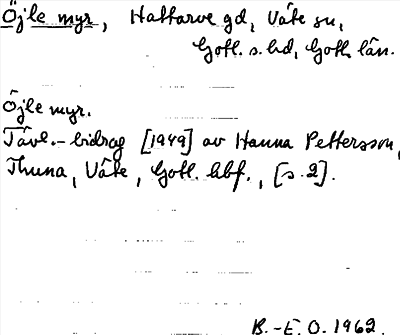 Öjle myr, Hallarve gd, Väte sn,
Gotl. s. hd, Gotl. län.
Öjle myr.
Tävl.-bidrag [1949] av Hanna Pettersson,
Thuna, Väte, Gotl. hbf., [s. 2].
B.-E. O. 1962.